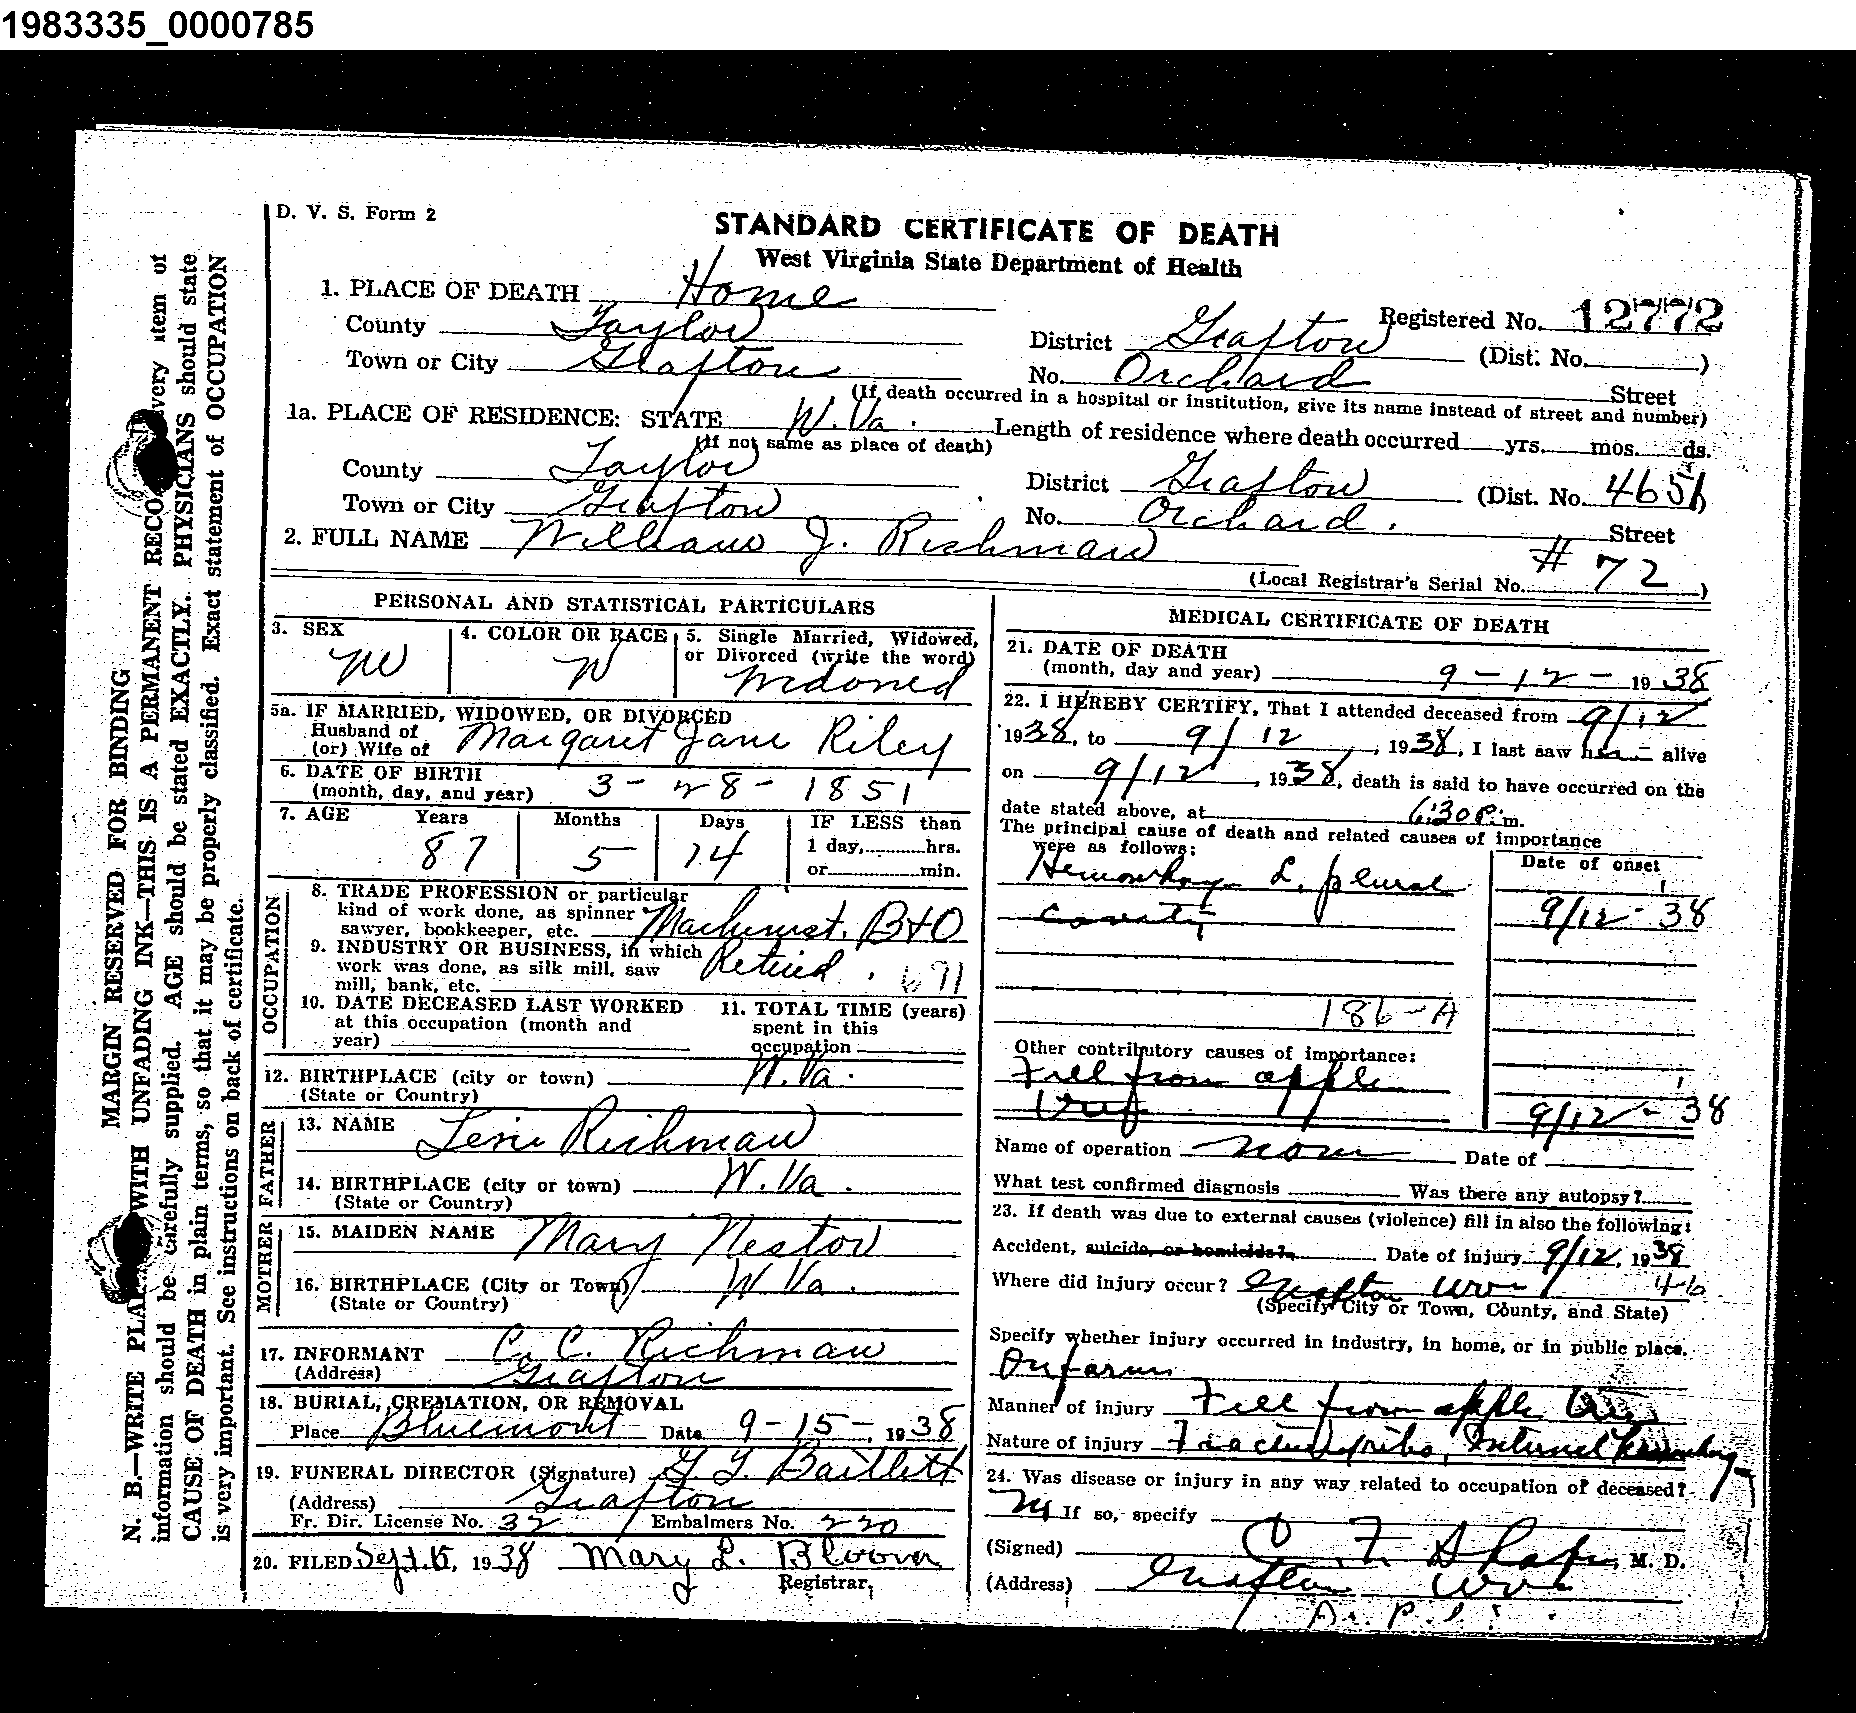 1983335_0000785
D. V. S. Form 2
STANDARD CERTIFICATE OF DEATH
West Virginia State Department of Health
1. PLACE OF DEATH Home
Registered No. 12772
County Taylor
District Grafton (Dist. No. )
Town or City Grafton
No. Orchard Street
(If death occurred in a hospital or institution, give its name instead of street and number)
1a. PLACE OF RESIDENCE: STATE W. Va. Length of residence where death occurred yrs. mos. ds.
(If not same as place of death)
County Taylor
District Grafton (Dist. No. 4651)
Town or City Grafton
No. Orchard. Street
2. FULL NAME William J. Richman
(Local Registrar's Serial No. # 72 )
PERSONAL AND STATISTICAL PARTICULARS
3. SEX M
4. COLOR OR RACE W
5. Single Married, Widowed, or Divorced (write the word) Widowed
5a. IF MARRIED, WIDOWED, OR DIVORCED
Husband of
(or) Wife of Margaret Jane Riley
6. DATE OF BIRTH
(month, day, and year) 3-28-1851
7. AGE Years Months Days IF LESS than
87 5 14 1 day, hrs.
or min.
OCCUPATION
8. TRADE PROFESSION or particular
kind of work done, as spinner
sawyer, bookkeeper, etc. Machinist. B+O
9. INDUSTRY OR BUSINESS, in which
work was done, as silk mill, saw
mill, bank, etc. Retired. 691
10. DATE DECEASED LAST WORKED
at this occupation (month and
year)
11. TOTAL TIME (years)
spent in this
occupation
12. BIRTHPLACE (city or town) W. Va.
(State or Country)
FATHER
13. NAME Richman
14. BIRTHPLACE (city or town) W. Va.
(State or Country)
MOTHER
15. MAIDEN NAME Mary Nestor
16. BIRTHPLACE (City or Town) W Va.
(State or Country)
17. INFORMANT C. C. Richman
(Address) Grafton
18. BURIAL, CREMATION, OR REMOVAL
Place Bluemont Date 9-15-, 1938
19. FUNERAL DIRECTOR (Signature) Bartlett
(Address) Grafton
Fr. Dir. License No. 32 Embalmers No. 220
20. FILED Sept. 15, 1938 Mary L.
Registrar,
MEDICAL CERTIFICATE OF DEATH
21. DATE OF DEATH
(month, day and year) 9-12-1938
22. I HEREBY CERTIFY, That I attended deceased from 9/12
1938, to 9/12, 1938, I last saw alive
on 9/12, 1938, death is said to have occurred on the
date stated above, at 6:30 P. m.
The principal cause of death and related causes of importance
were as follows:
Date of onset
Hemorrhage L. pleural
cavity 9/12-38
186-A
Other contributory causes of importance:
Fell from apple
tree 9/12-38
Name of operation none Date of
What test confirmed diagnosis Was there any autopsy?
23. If death was due to external causes (violence) fill in also the following:
Accident, suicide, or homicide? Date of injury 9/12, 1938
Where did injury occur? Grafton W Va
(Specify City or Town, County, and State)
Specify whether injury occurred in industry, in home, or in public place.
On farm
Manner of injury Fell from apple tree
Nature of injury Fractured ribs, Internal hemorrhage
24. Was disease or injury in any way related to occupation of deceased?
No If so, specify
(Signed) M. D.
(Address) Grafton W Va
MARGIN RESERVED FOR BINDING
N. B.—WRITE WITH UNFADING INK—THIS IS A PERMANENT item of
information should be carefully supplied. AGE should be stated EXACTLY. PHYSICIANS should state
CAUSE OF DEATH in plain terms, so that it may be properly classified. Exact statement of OCCUPATION
is very important. See instructions on back of certificate.